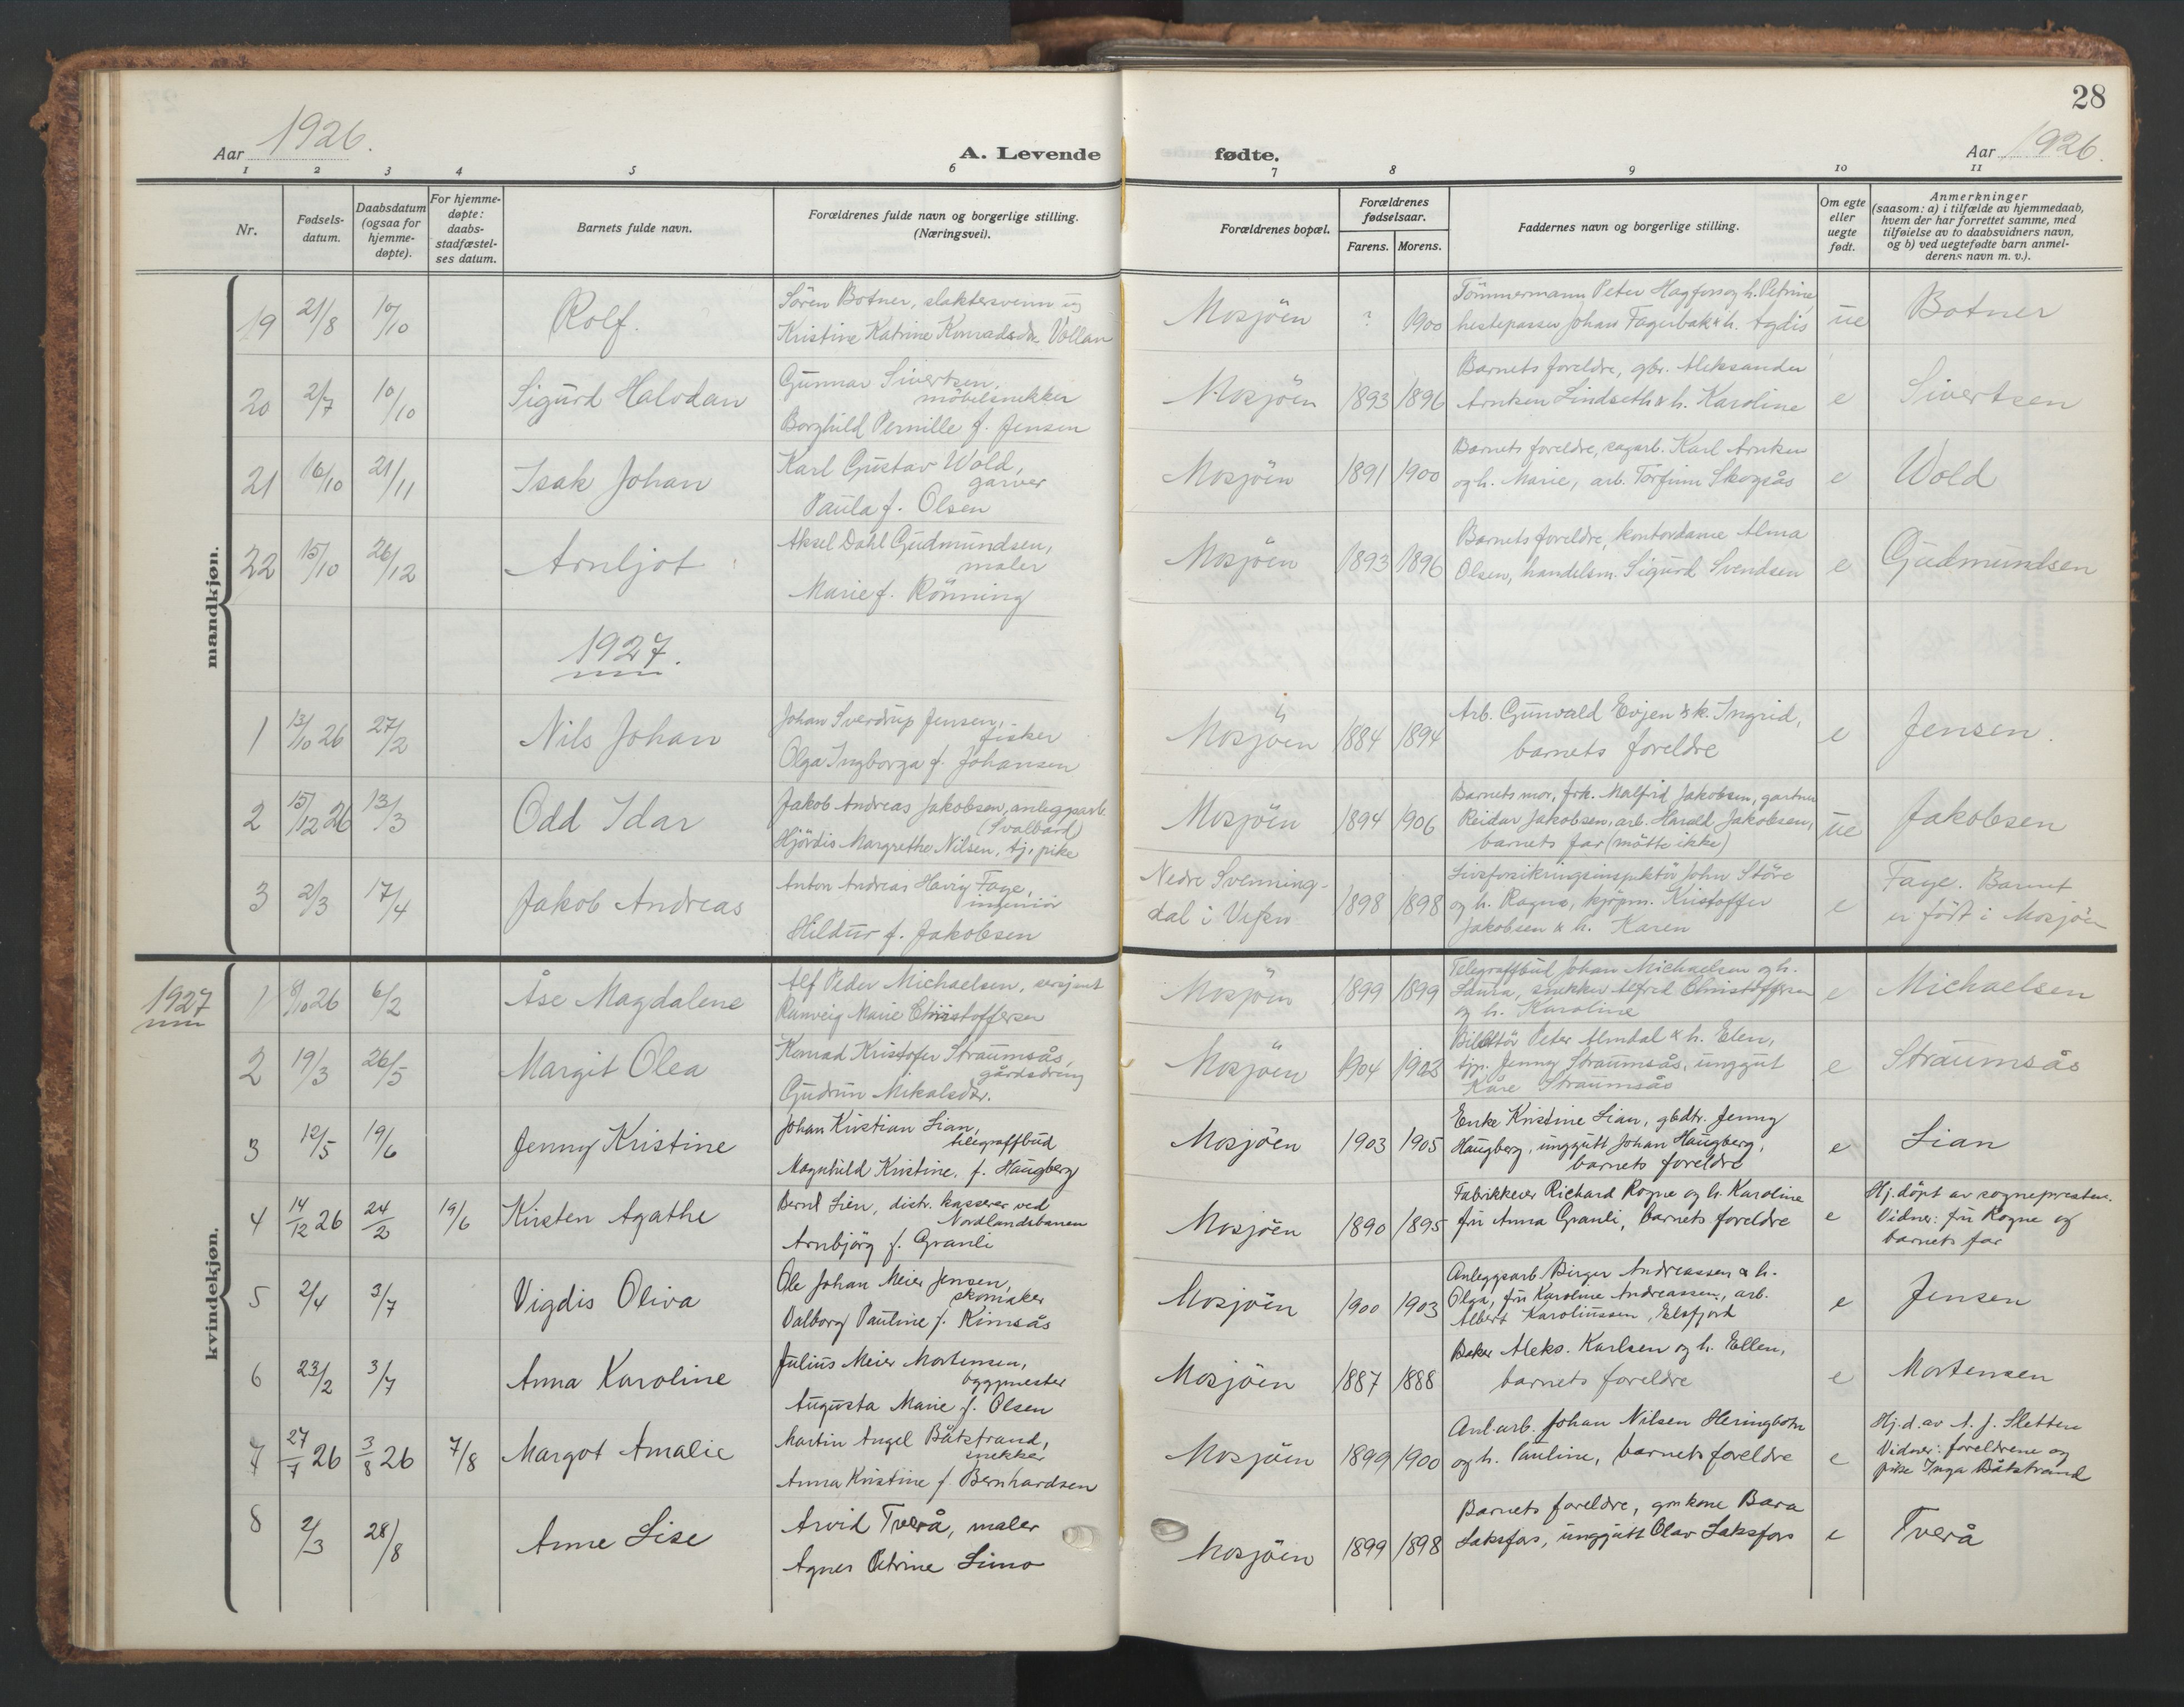 28
Aar 1926.
A. Levende fødte.
Aar 1926.
1 2 3 4 5 6 7 8 9 10 11
Nr.
Fødsels-
datum.
Daabsdatum
(ogsaa for
hjemme-
døpte).
For hjemme-
døpte:
daabs-
stadfæstel-
ses datum.
Barnets fulde navn.
Forældrenes fulde navn og borgerlige stilling.
(Næringsvei).
Forældrenes bopæl.
Forældrenes
fødselsaar.
Farens. Morens.
Faddernes navn og borgerlige stilling.
Om egte
eller
uegte
født.
Anmerkninger
(saasom: a) i tilfælde av hjemmedaab,
hvem der har forrettet samme, med
tilføielse av to daabsvidners navn,
og b) ved uegtefødte barn anmel-
derens navn m. v.).
mandkjøn.
19 21/8 10/10 Rolf.
Sören Botner, slaktersvenn og
Kristine Katrine Konradsdtr. Vollan
Mosjöen ? 1900
Tömmermann Peter Hagfors og h. Petrine,
hestepasser Johan Fagerbakk & h. Agdis
ue Botner
20 2/7 10/10 Sigurd Halvdan
Gunnar Sivertsen,
möbelsnekker
Borghild Pernille f. Jensen
Mosjöen 1893 1896
Barnets foreldre, gbr. Aleksander
Arntsen Lindseth & h. Karoline
e Sivertsen
21 16/10 21/11 Isak Johan
Karl Gustav Wold,
garver
Paula f. Olsen
Mosjöen 1891 1900
Barnets foreldre, sagarb. Karl Arntsen
og h. Marie, arb. Torfinn Skogsås
e Wold
22 15/10 26/12 Arnljot
Aksel Dahl Gudmundsen,
maler
Marie f. Rönning
Mosjöen 1893 1896
Barnets foreldre, kontordame Alma
Olsen, handelsm. Sigurd Svendsen
e Gudmundsen
1927.
1 13/10 26 27/2 Nils Johan
Johan Sverdrup Jensen,
fisker
Olga Ingborga f. Johansen
Mosjöen 1884 1894
Arb. Gunvald Evjen & k. Ingrid,
barnets foreldre
e Jensen.
2 15/12 26 13/3 Odd Idar
Jakob Andreas Jakobsen, anleggsarb.
(Svalbard)
Hjördis Margrethe Nilsen, tj. pike
Mosjöen 1894 1906
Barnets mor, frk. Malfrid Jakobsen, gartner
Reidar Jakobsen, arb. Harald Jakobsen,
barnets far (mötte ikke)
ue Jakobsen
3 2/3 17/4 Jakob Andreas
Anton Andreas Havig Faye,
ingeniör
Hildur f. Jakobsen
Nedre Svenning-
dal i Vefsn 1898 1898
Livsforsikringsinspektör John Störe
og h. Ragna, kjöpm. Kristoffer
Jakobsen & h. Karen
e Faye. Barnet
er född i Mosjöen
kvindekjøn.
1927
1 8/10 26 6/2 Åse Magdalene
Alf Peder Michaelsen, sersjant
Ranveig Marie Christoffersen
Mosjöen 1899 1899
Telegrafbud Johan Michaelsen og h.
Laura, snekker Alfred Christoffersen
og h. Karoline
e Michaelsen
2 19/3 26/5 Margit Olea
Konrad Kristofer Straumsås,
gårdsdreng
Gudrun Mikalsdtr.
Mosjöen 1904 1902
Peter Almdal & h. Elen,
tjp. Jenny Straumsås, unggut
Kåre Straumsås
e Straumsås
3 12/5 19/6 Jenny Kristine
Johan Kristian Lian,
telegrafbud
Magnhild Kristine, f. Haugberg
Mosjöen 1903 1905
Enke Kristine Lian, gbdtr. Jenny
Haugberg, unggutt Johan Haugberg,
barnets foreldre
e Lian
4 14/12 26 24/2 19/6 Kirsten Agathe
Bernt Lien, distr. kasserer ved
Nordlandsbanen
Arnbjörg f. Granli
Mosjöen 1890 1895
Fabrikkeier Richard Rogne og h. Karoline
fru Anna Granli, barnets foreldre
e
Hj. döpt av sognepresten.
Vidner: fru Rogne og
barnets far
5 2/4 3/7 Vigdis Oliva
Ole Johan Meier Jensen,
skomaker
Valborg Pauline f. Kimsås
Mosjöen 1900 1903
Anleggsarb Birger Andreassen & h.
Olga, fru Karoline Andreassen, arb.
Albert Karoliussen, Elsfjord
e Jensen
6 23/2 3/7 Anna Karoline
Julius Meier Mortensen,
byggmester
Augusta Marie f. Olsen
Mosjöen 1887 1888
Baker Aleks. Karlsen og h. Ellen,
barnets foreldre
e Mortensen
7 27/7 26 3/8 26 7/8 Margot Amalie
Martin Angel Båtstrand,
snekker
Anna Kristine f. Bernhardsen
Mosjöen 1899 1900
Anl.arb. Johan Nilsen Heringbotn
og h. Pauline, barnets foreldre
e
Hj. d. av A. J. Sletten
Vidner: foreldrene og
pike Inga Båtstrand
8 2/3 28/8 Anne Lise
Arvid Tverå, maler
Agnes Petrine Limo
Mosjöen 1899 1898
Barnets foreldre, gm kone Bara
Laksfors, unggutt Olav Laksfors
e Tverå